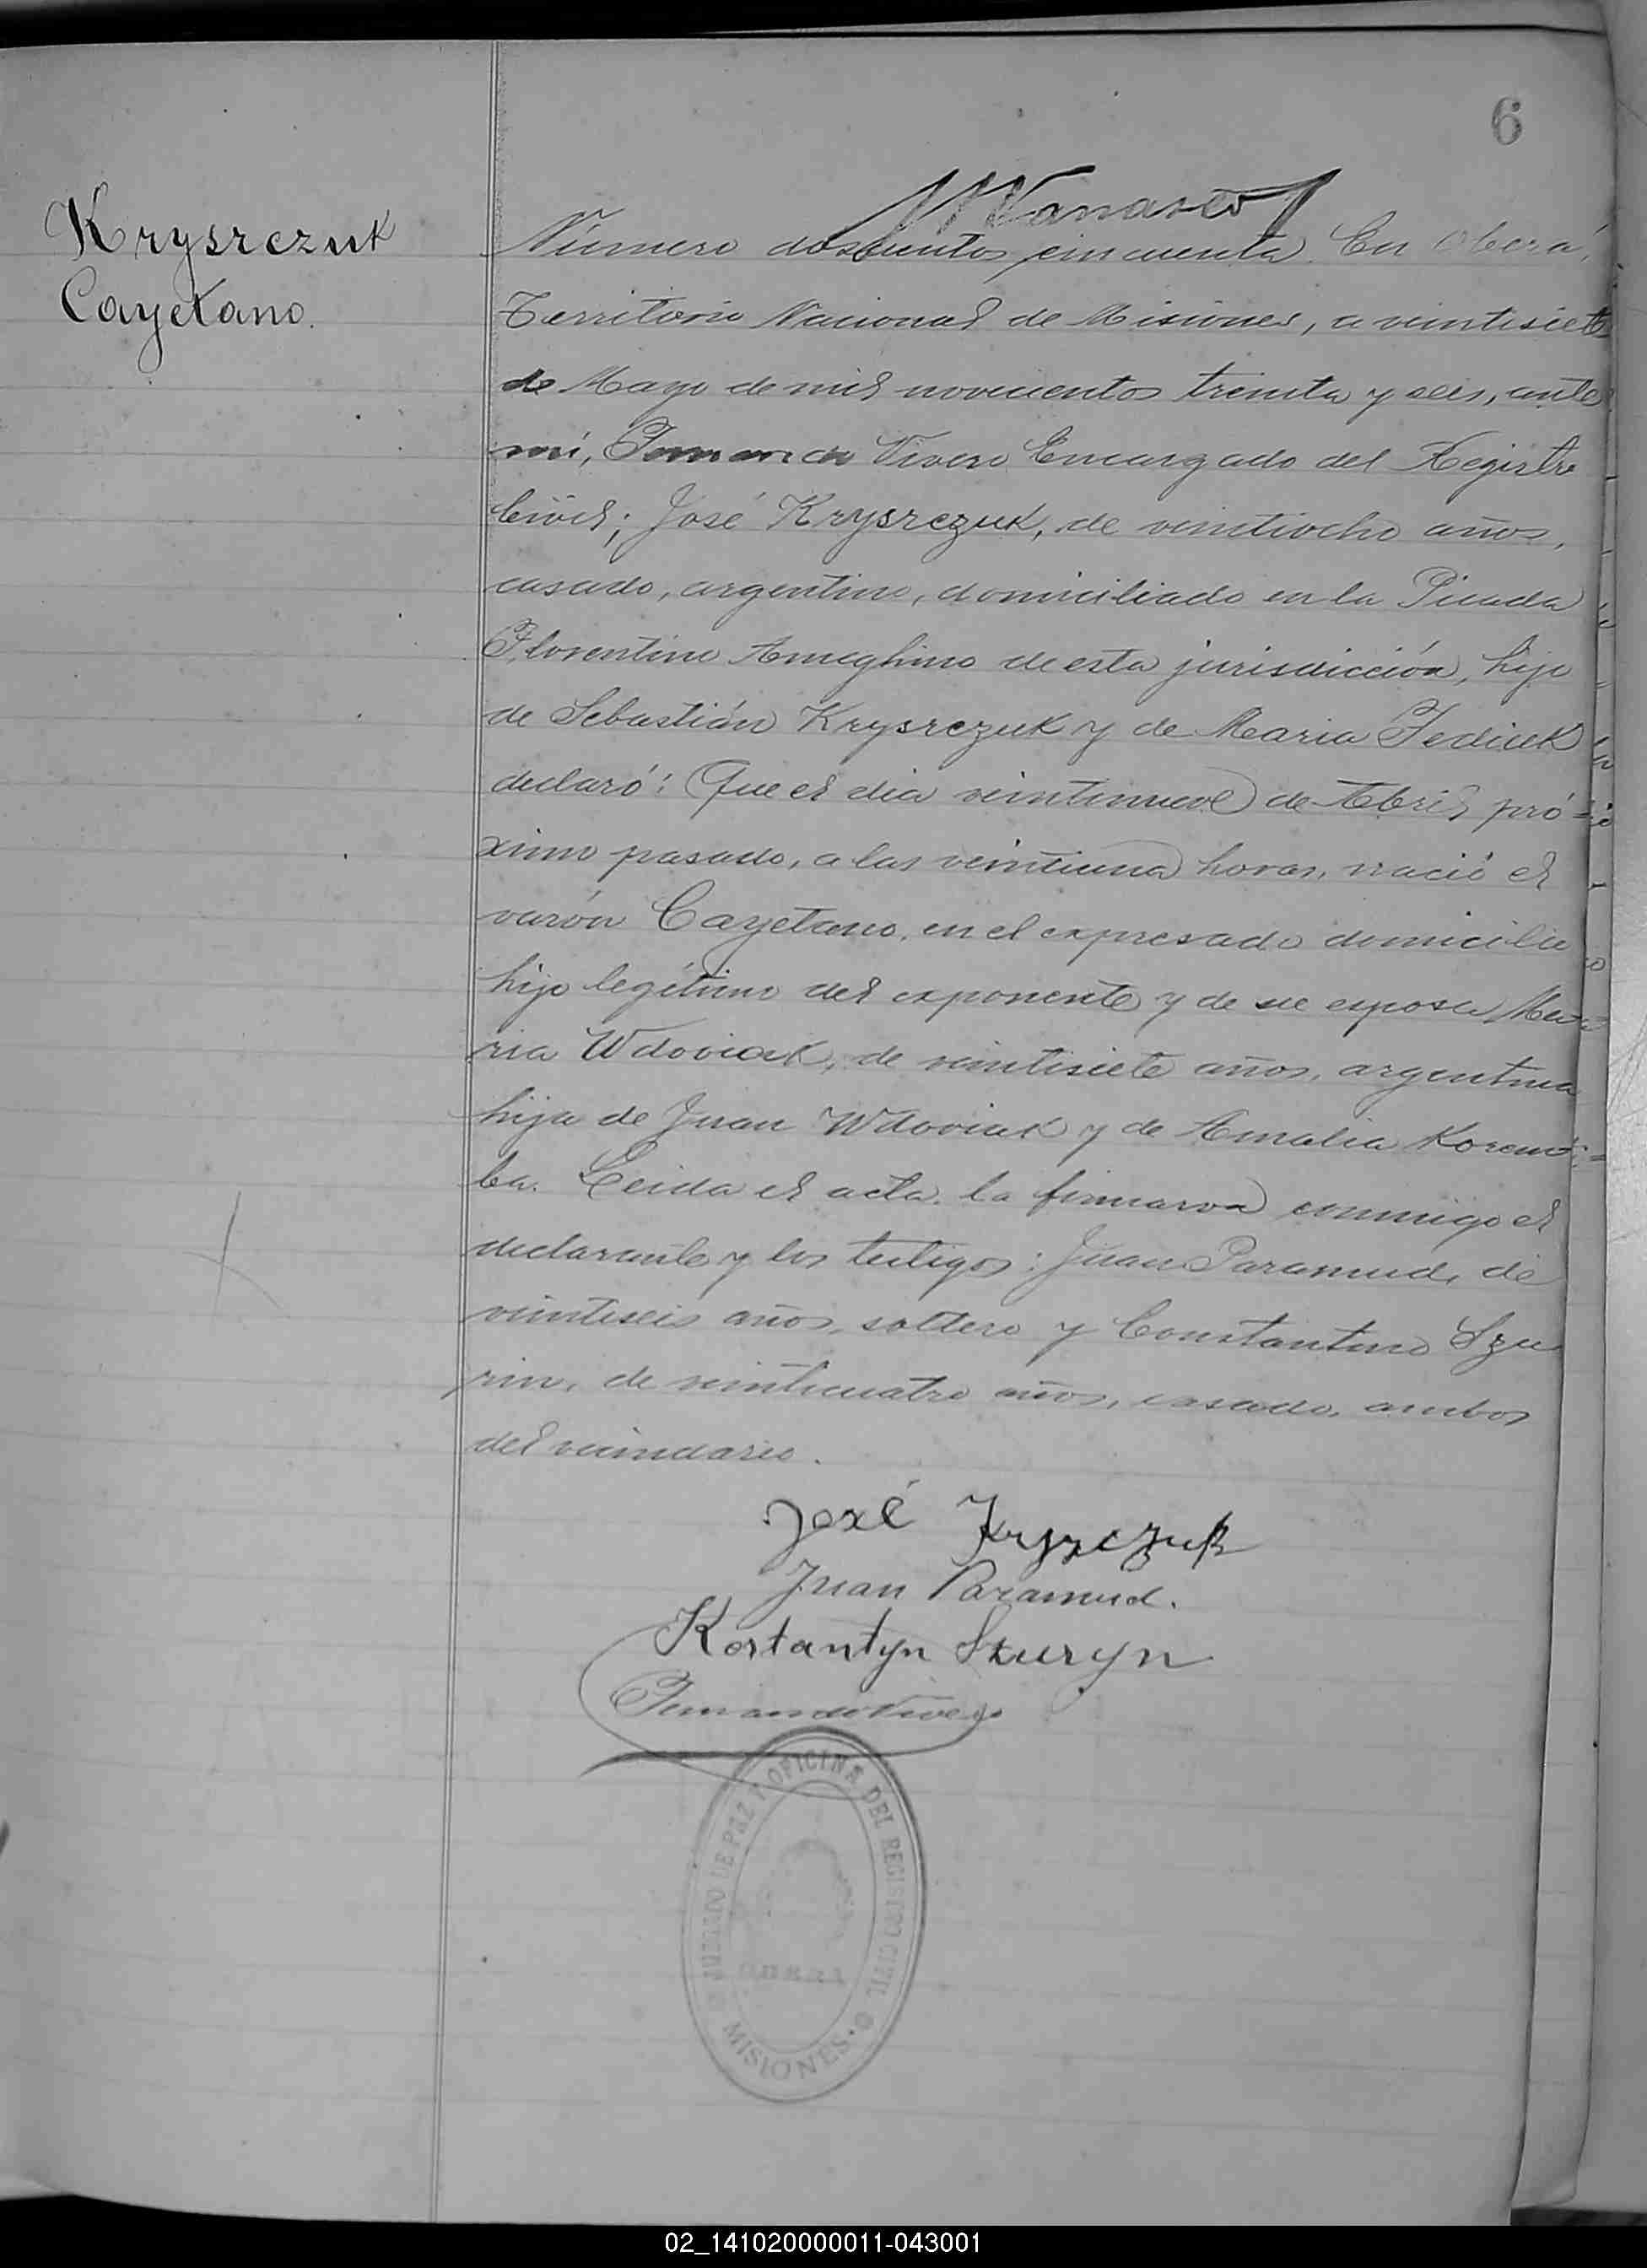 6
Krysrczuk
Cayetano.
Número doscientos cincuenta. En Oberá,
Territorio Nacional de Misiones, a veintisiete
de Mayo de mil novecientos treinta y seis, ante
mí, Vivero Encargado del Registro
Civil; José Krysrczuk, de veintiocho años,
casado, argentino, domiciliado en la Picada
Florentino Ameghino de esta jurisdicción, hijo
de Sebastián Krysrczuk y de Maria Fediuk
declaró: Que el dia veintinueve de Abril pró=
ximo pasado, a las veintiuna horas, nació el
varón Cayetano, en el expresado domicilio
hijo legítimo del exponente y de su esposa Ma=
ria Wdoviak, de veintisiete años, argentina
hija de Juan Wdoviak y de Amalia Korem=
ba. Leida el acta, la firmaron conmigo el
declarante y los testigos: Juan Paramud, de
veintiseis años, soltero y Constantino Szu
rin, de veinticuatro años, casado, ambos
del vecindario.
José Kryszczuk
Juan Paramud.
Kostantyn Szuryn
JUZGADO DE PAZ Y OFICINA DEL REGISTRO CIVIL
OBERA
MISIONES
02_141020000011-043001